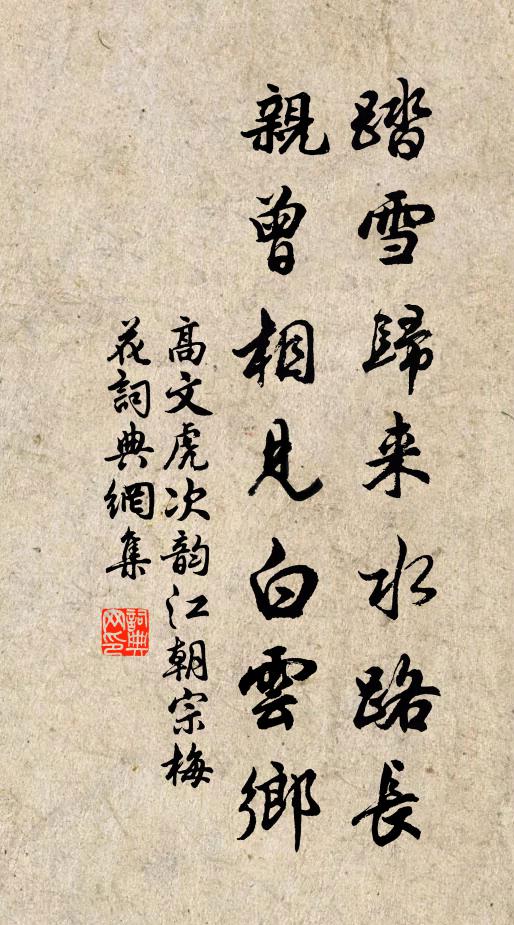 踏雪歸来水路長
親曾相見白雲鄉
高文虎次韵江朝宗梅
花詞典網集
詞典
网印